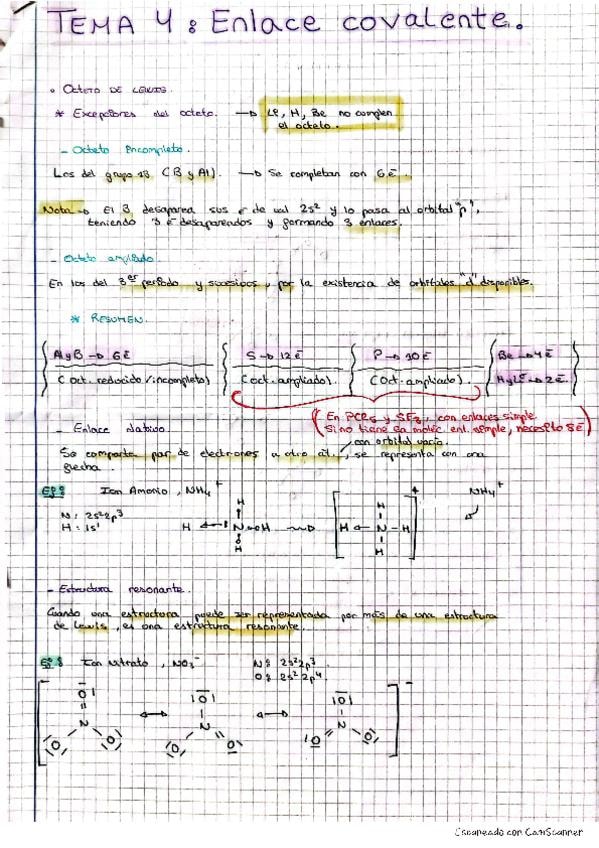 TEMA 4: Enlace covalente.
• Octeto DE LEWIS.
* Excepciones del octeto. → Li, H, Be no complen
el octeto.
- Octeto incompleto.
Los del grupo 13 (B y Al). → Se completan con 6ē.
Nota → El B, desaparea sus ē de val 2s² y lo pasa al orbital "p",
teniendo 3 ē desapareados y formando 3 enlaces.
- Octeto ampliado
En los del 3er periodo y sucesivos, por la existencia de orbitales "d" disponibles.
* RESUMEN.
Al y B → 6ē S → 12ē P → 10ē Be → 4ē
(oct. reducido/incompleto) (oct. ampliado). (oct. ampliado). H y Li → 2ē
(En PCl5 y SF6, con enlaces simple.
Si no tiene la moléc. enl. simple, necesito 8ē)
- Enlace dativo.
con orbital vacío.
Se comparte par de electrones a otro át., se representa con una
flecha.
Ej: Ion Amonio, NH4+
N: 2s²2p³
H: 1s¹
H
H N H
H
[H N H]+
H
H
NH4+
- Estructura resonante.
Cuando una estructura puede ser representada por más de una estructura
de Lewis, es una estructura resonante.
Ej: Ion Nitrato, NO3- N: 2s²2p³
O: 2s²2p⁴
[ O O O ]-
N ↔ N ↔ N
O O O O O O
Escaneado con CamScanner